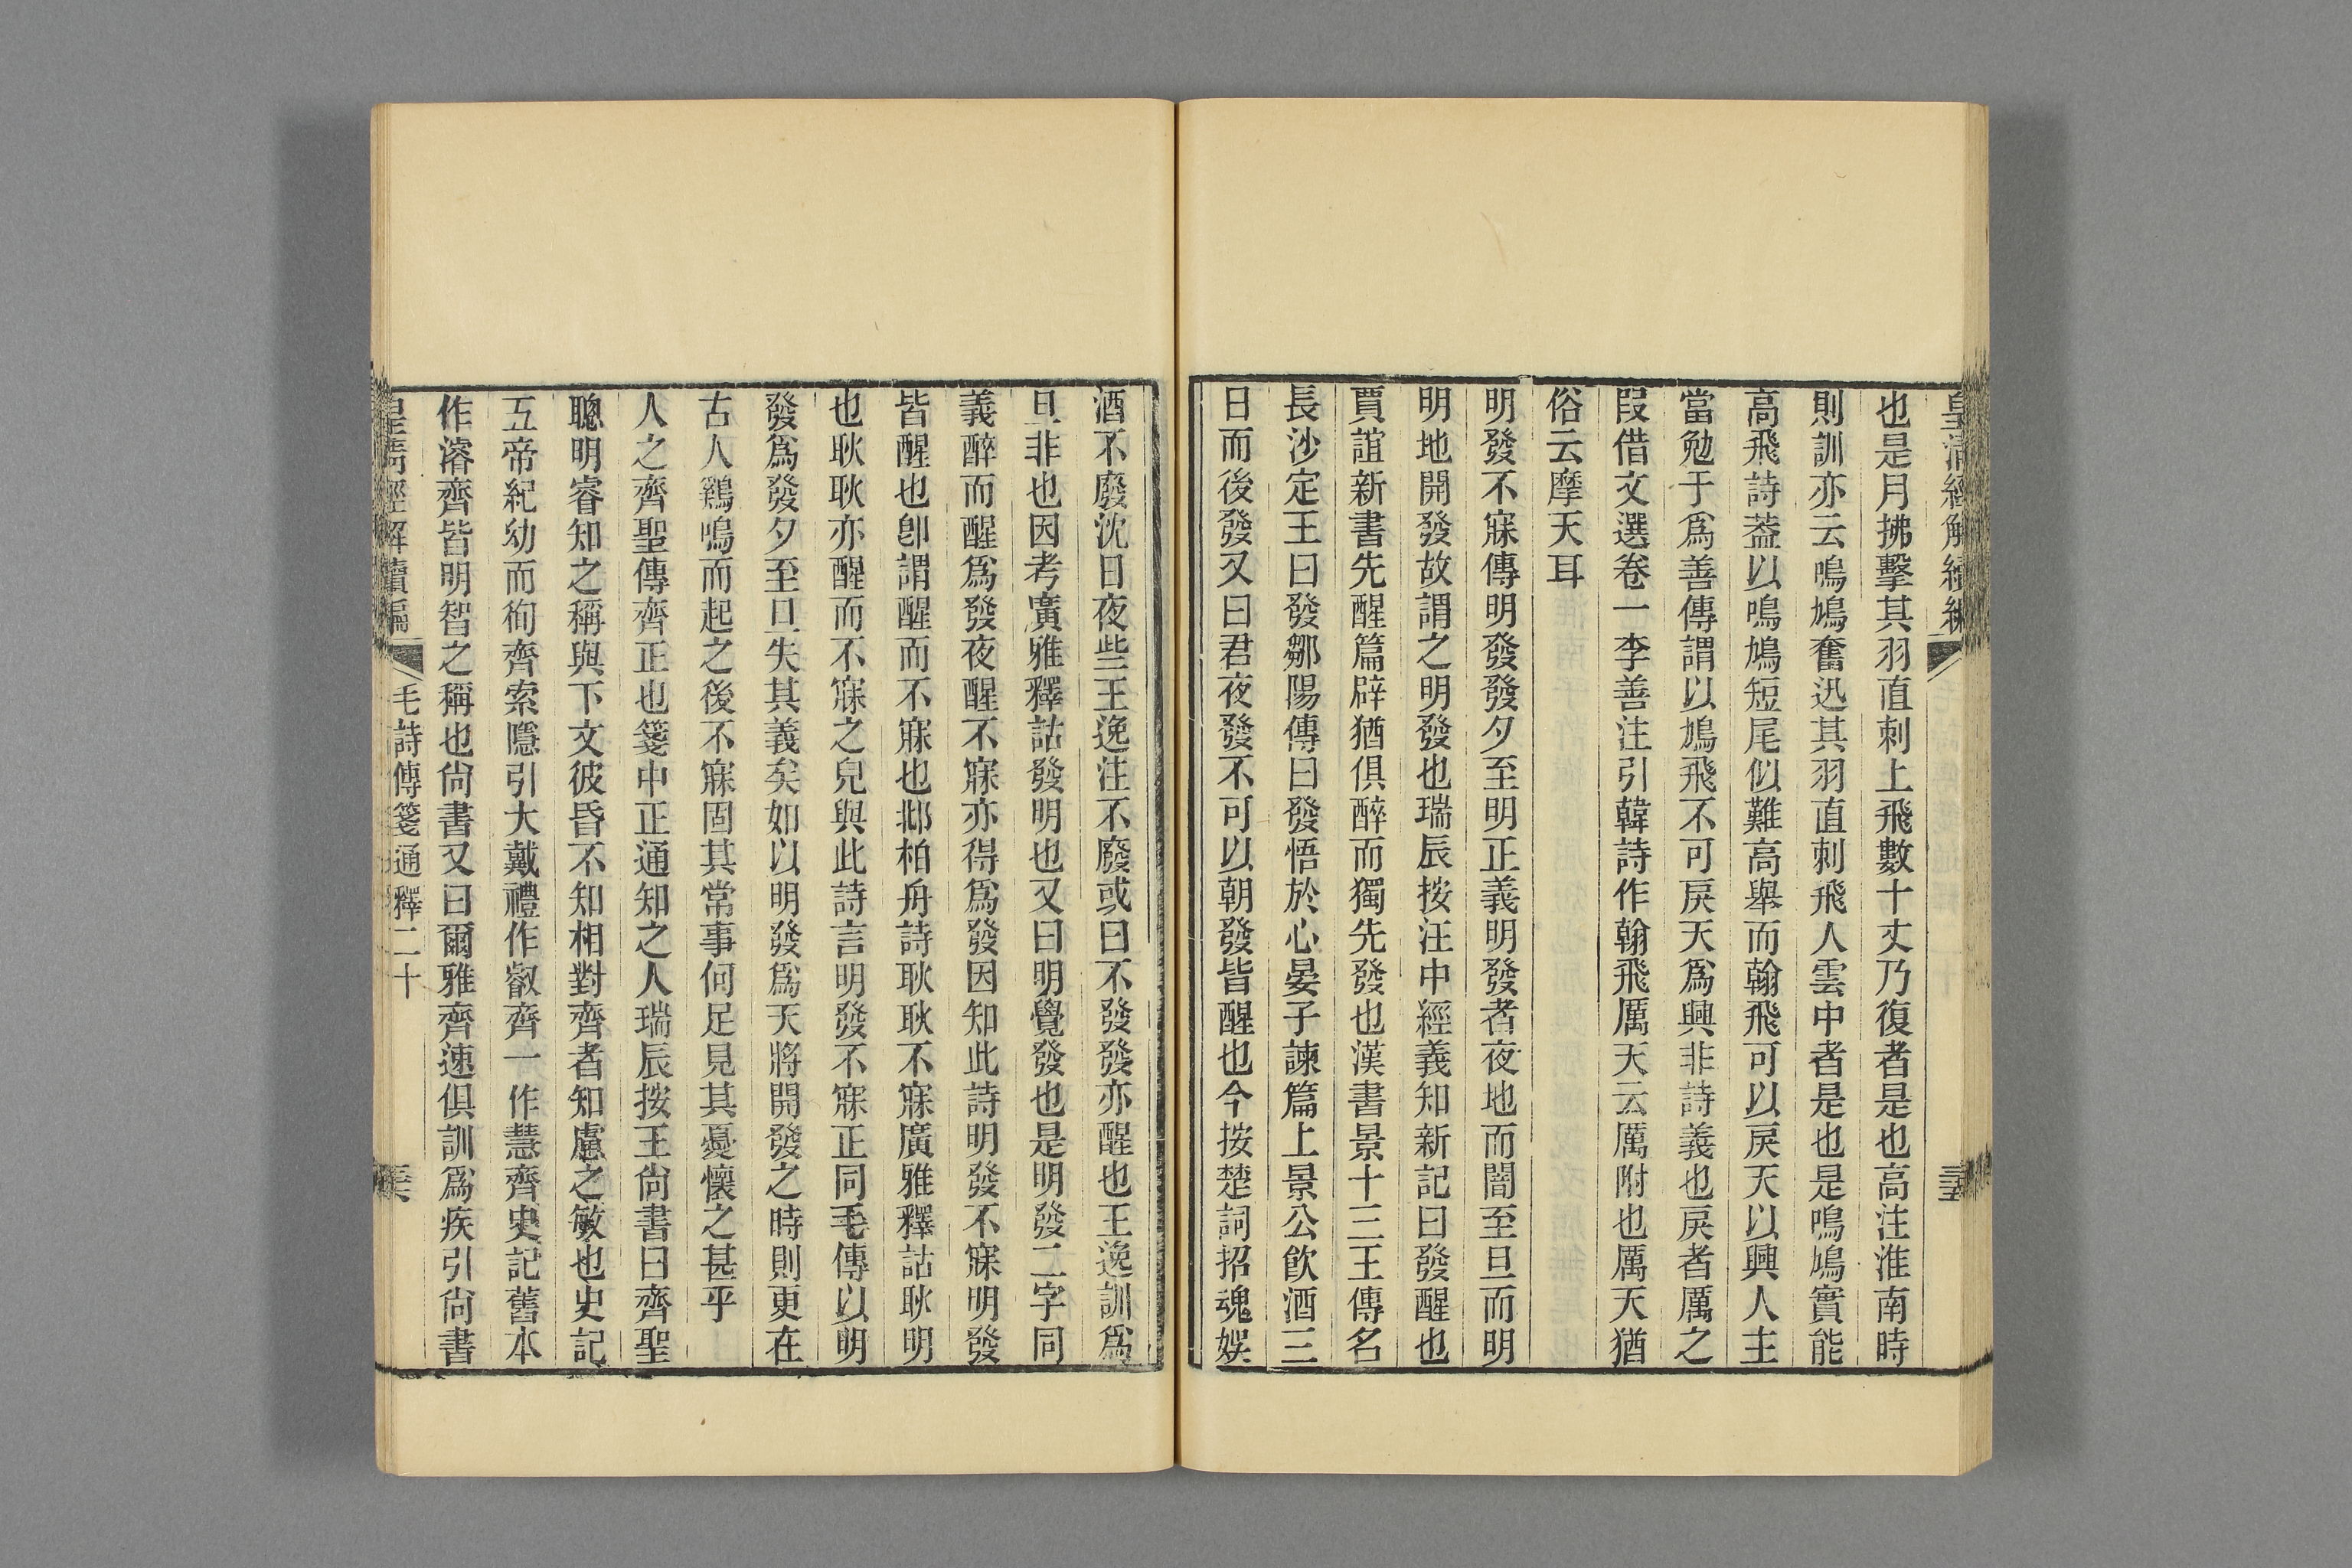 皇清經解續編
也是月拂擊其羽直刺上飛數十丈乃復者是也高注淮南時
則訓亦云鳴鳩奮迅其羽直刺飛人雲中者是也是鳴鳩實能
高飛詩葢以鳴鳩短尾似難高舉而翰飛可以戾天以興人主
當勉于爲善傳謂以鳩飛不可戾天爲興非詩義也戾者厲之
叚借文選卷一李善注引韓詩作翰飛厲天云厲附也厲天猶
俗云摩天耳
明發不寐傳明發發夕至明正義明發者夜地而闇至旦而明
明地開發故謂之明發也瑞辰按汪中經義知新記曰發醒也
賈誼新書先醒篇辟猶俱醉而獨先發也漢書景十三王傳名
長沙定王曰發鄒陽傳曰發悟於心晏子諫篇上景公飮酒三
日而後發又曰君夜發不可以朝發皆醒也今按楚詞招魂娛
酒不廢沈日夜些王逸注不廢或曰不發發亦醒也王逸訓爲
旦非也因考廣雅釋詁發明也又曰明覺發也是明發二字同
義醉而醒爲發夜醒不寐亦得爲發因知此詩明發不寐明發
皆醒也卽謂醒而不寐也邶柏舟詩耿耿不寐廣雅釋詁耿明
也耿耿亦醒而不寐之皃與此詩言明發不寐正同毛傳以明
發爲發夕至旦失其義矣如以明發爲天將開發之時則更在
古人鷄鳴而起之後不寐固其常事何足見其憂懷之甚乎
人之齊聖傳齊正也箋中正通知之人瑞辰按王尙書曰齊聖
聰明睿知之稱與下文彼昏不知相對齊者知慮之敏也史記
五帝紀幼而徇齊索隱引大戴禮作叡齊一作慧齊史記舊本
作濬齊皆明智之稱也尙書又曰爾雅齊速俱訓爲疾引尙書
皇清經解續編
毛詩傳箋通釋二十